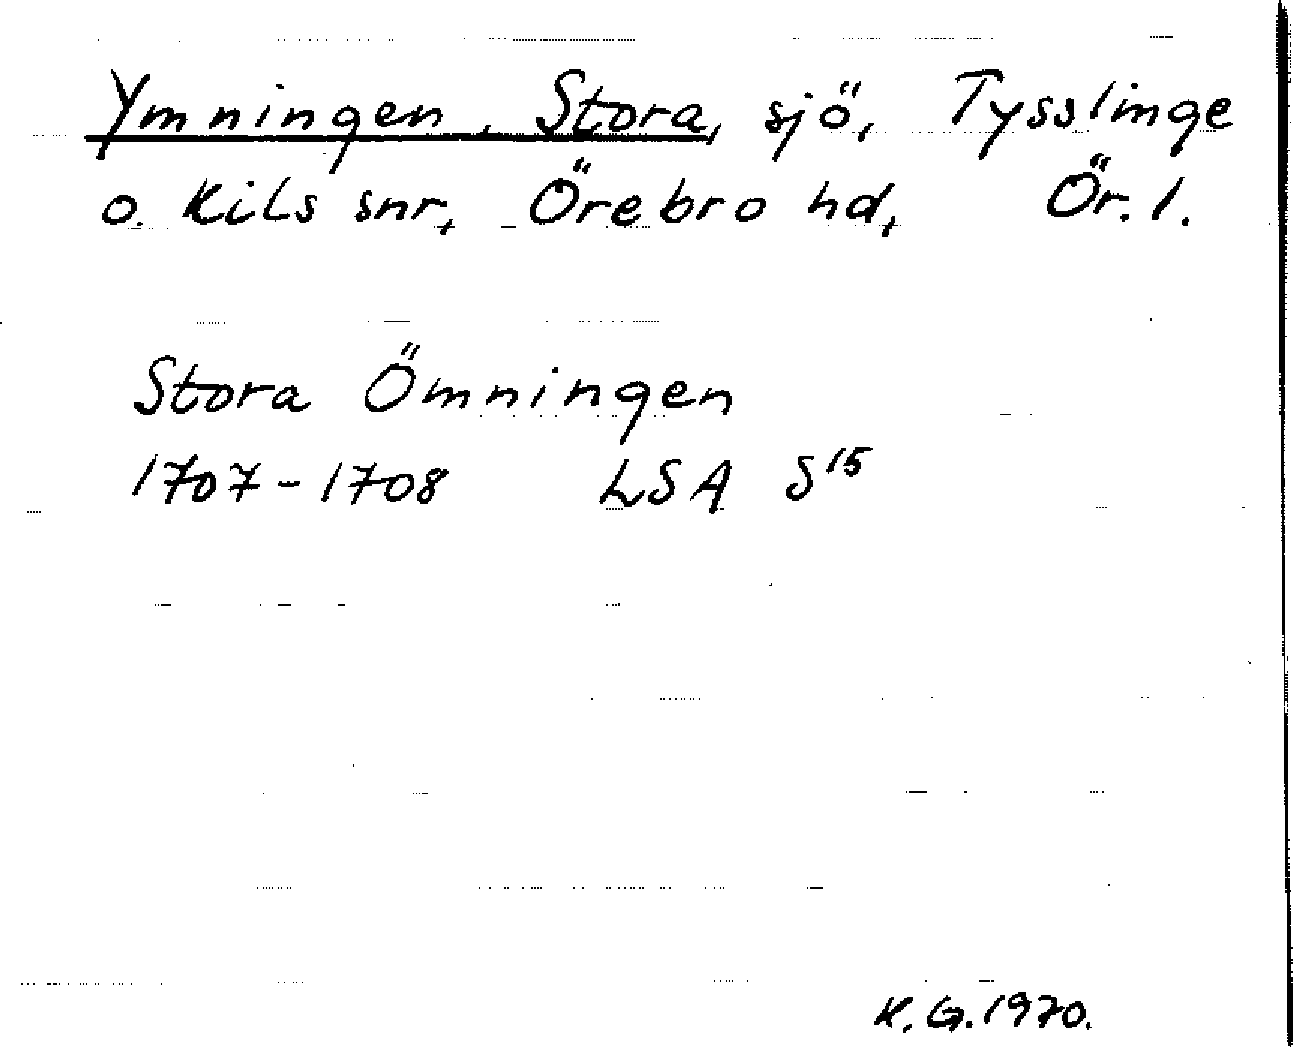 Ymningen, Stora, sjö, Tysslinge
o. Kils snr, Örebro hd, Ör. l.
Stora Ömningen
1707-1708 LSA S15
K.G. 1970.